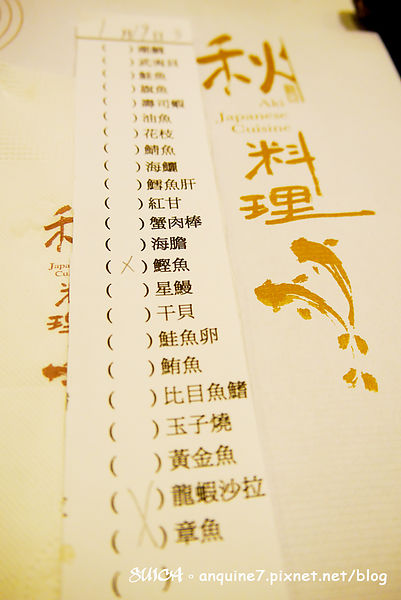 1月19日
( )潮鯛
( )武夷貝
( )鮭魚
( )旗魚
( )壽司蝦
( )油魚
( )花枝
( )鯖魚
( )海鱺
( )鱈魚肝
( )紅甘
( )蟹肉棒
( )海膽
(×)鰹魚
( )星鰻
( )干貝
( )鮭魚卵
( )鮪魚
( )比目魚鰭
( )玉子燒
( )黃金魚
(×)龍蝦沙拉
(×)章魚
( )
秋
Aki
Japanese
Cuisine
料
理
秋
Japa
Cui
料
理
SUICA。anquine7.pixnet.net/blog